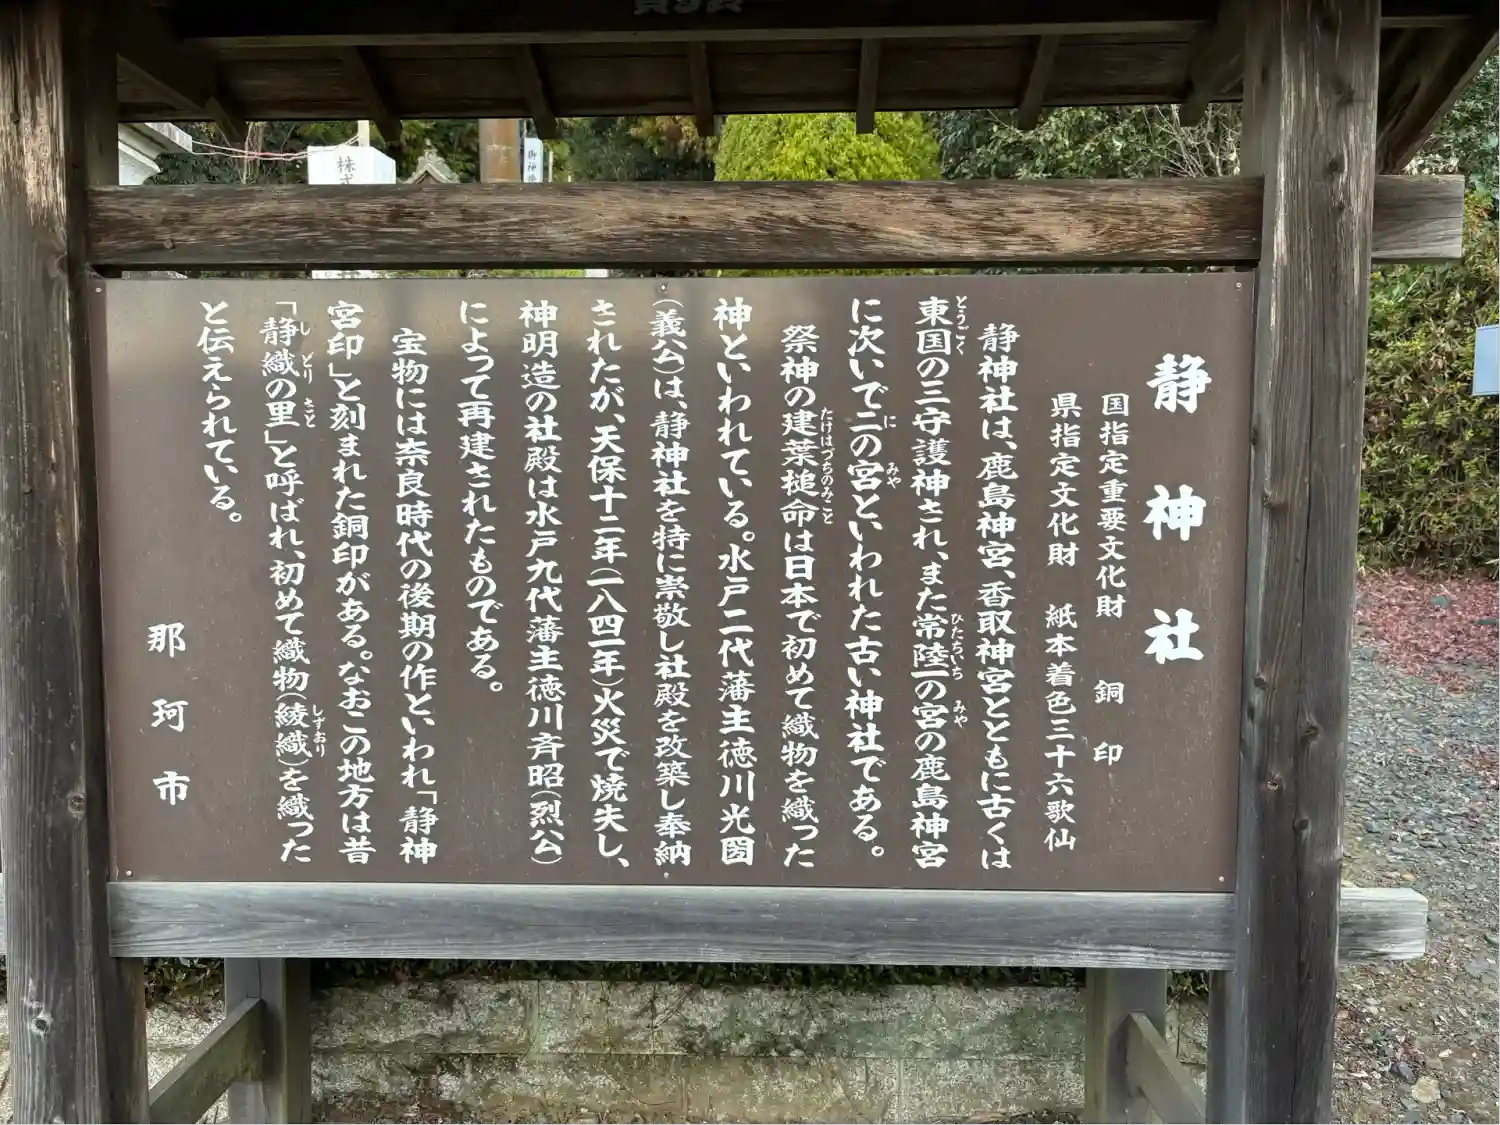 静神社
国指定重要文化財　銅印
県指定文化財　紙本着色三十六歌仙
静神社は、鹿島神宮、香取神宮とともに古くは
東国の三守護神され、また常陸一の宮の鹿島神宮
に次いで二の宮といわれた古い神社である。
祭神の建葉槌命は日本で初めて織物を織った
神といわれている。水戸二代藩主徳川光圀
(義公)は、静神社を特に崇敬し社殿を改築し奉納
されたが、天保十二年(一八四一年)火災で焼失し、
神明造の社殿は水戸九代藩主徳川斉昭(烈公)
によって再建されたものである。
宝物には奈良時代の後期の作といわれ「静神
宮印」と刻まれた銅印がある。なおこの地方は昔
「静織の里」と呼ばれ、初めて織物(綾織)を織った
と伝えられている。
那珂市
とうごく
ひたちいち
みや
に
みや
たけはづちのみこと
しどり
さと
しずおり
株式
御神